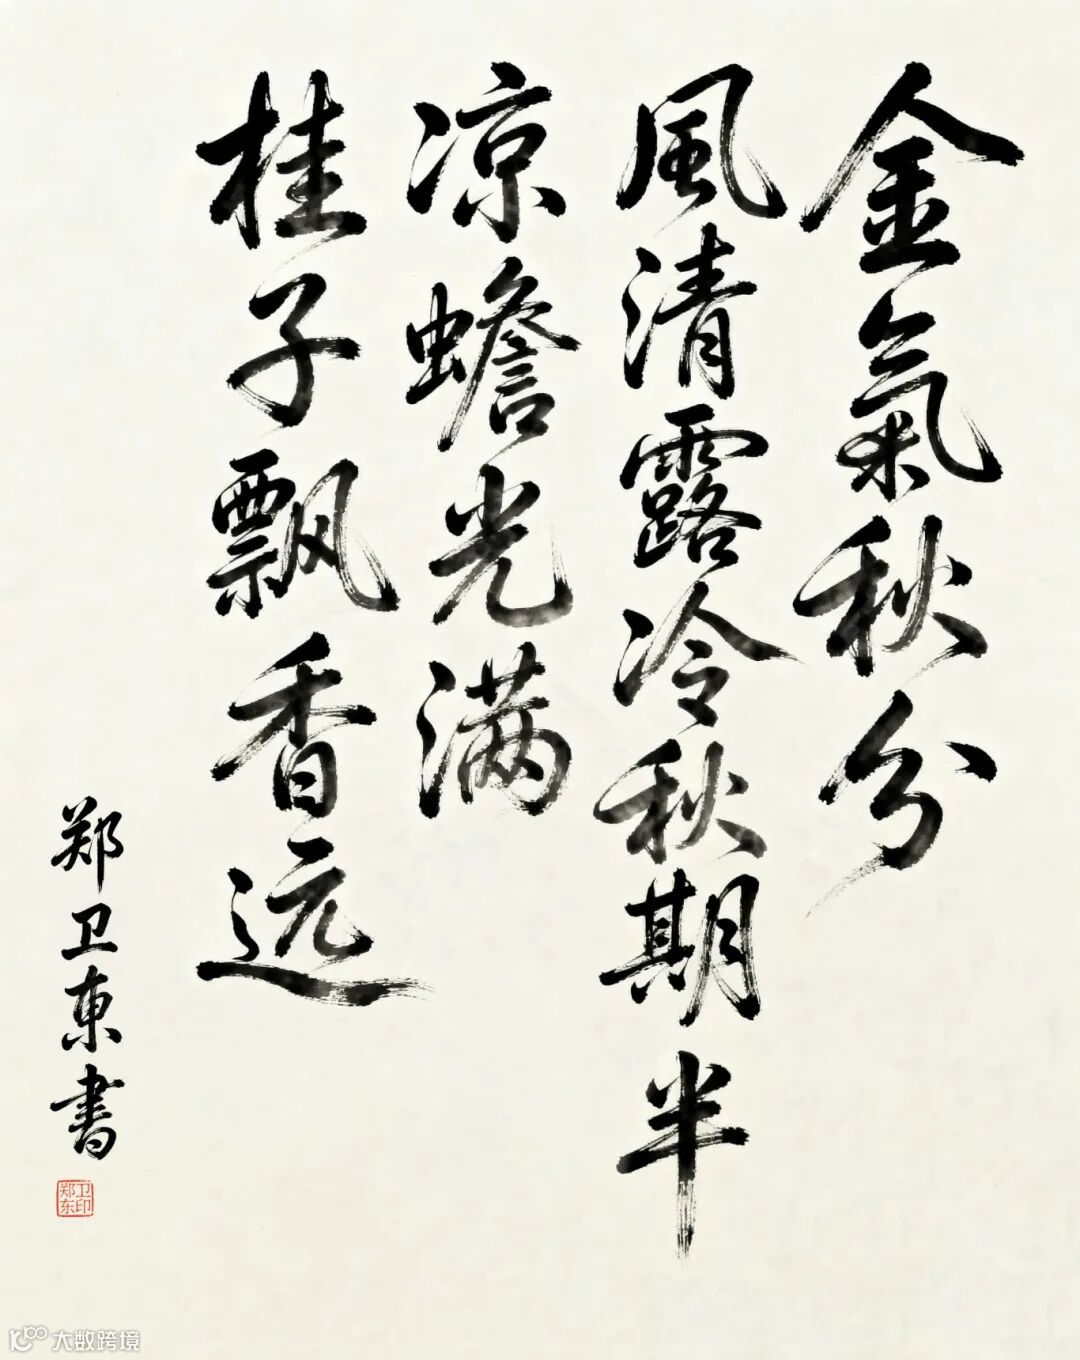 金氣秋分
風清露冷秋期半
凉蟾光满
桂子飘香远
郑卫東書
郑卫东印
大数跨境